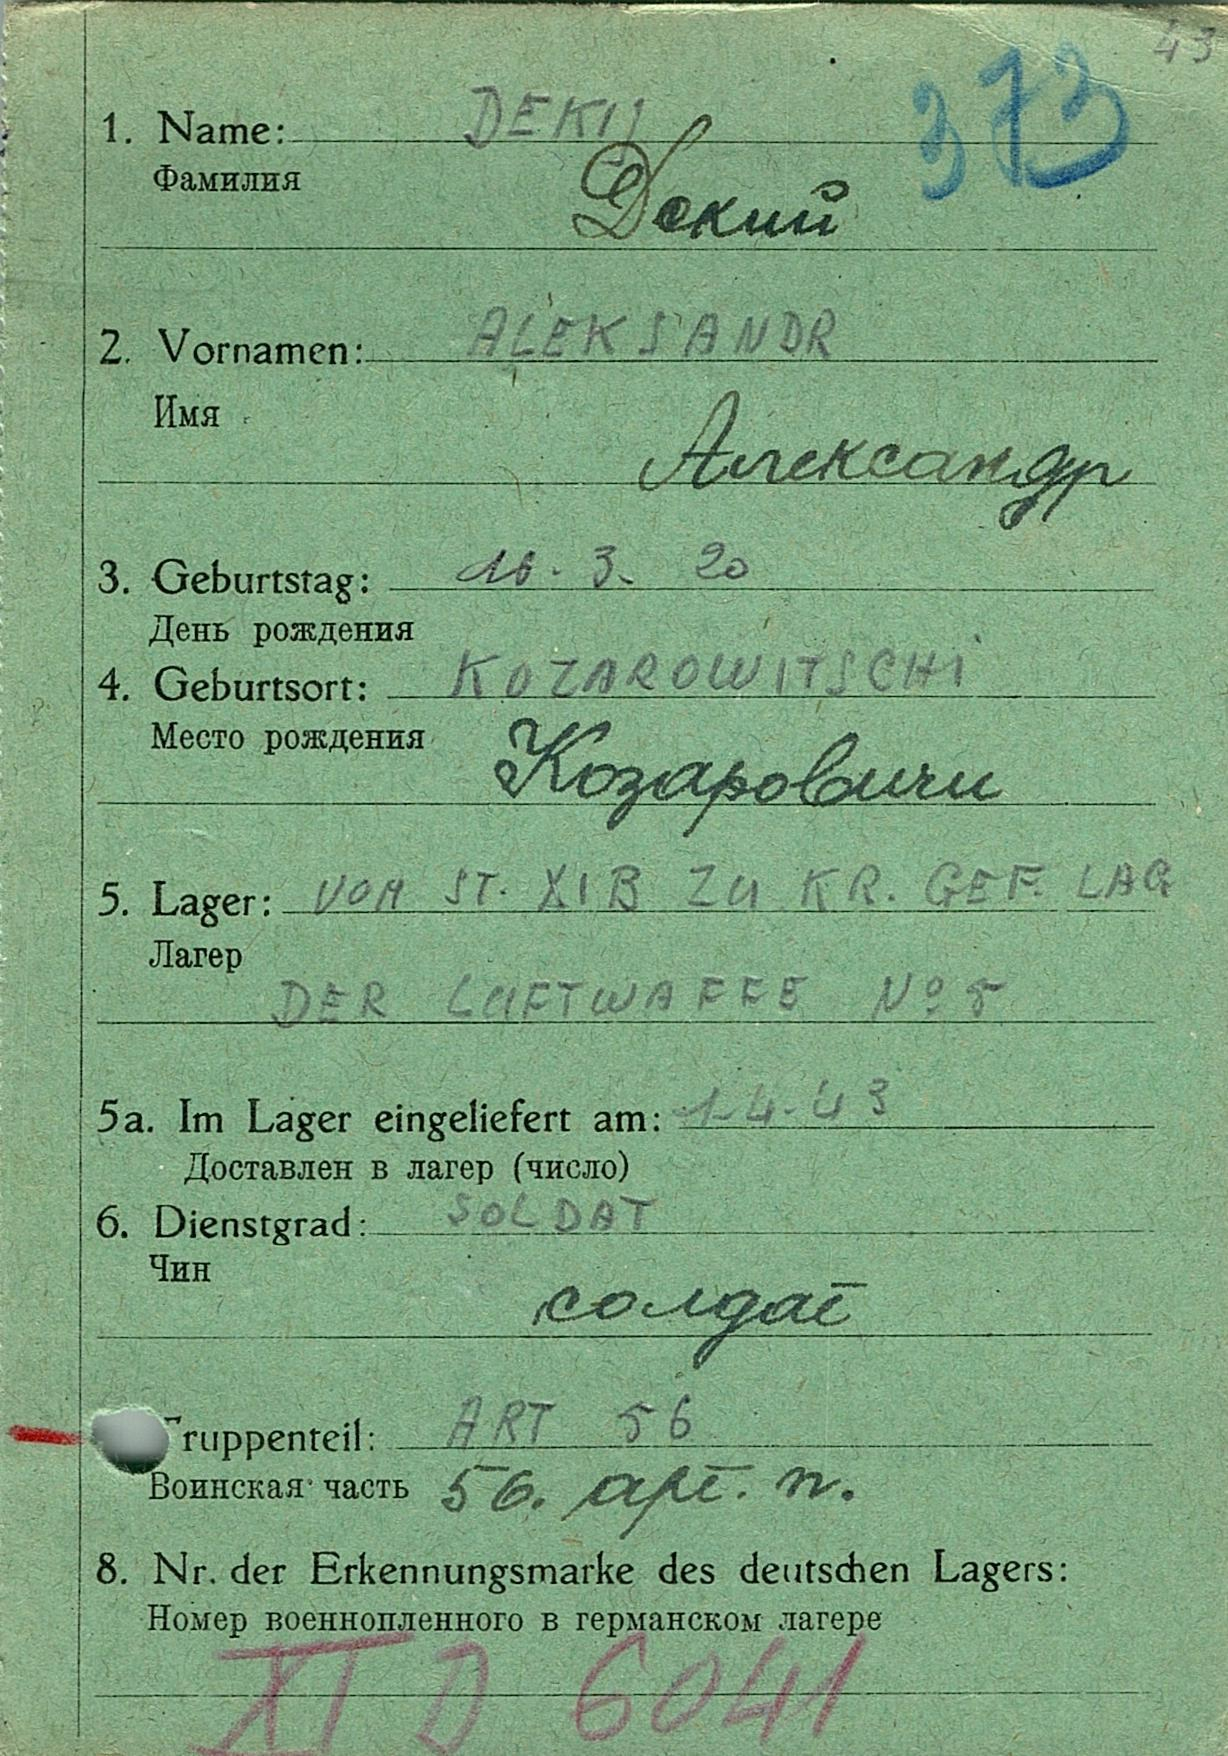 43
373
1. Name: DEKIJ
Фамилия
Дский
2. Vornamen: ALEKSANDR
Имя
Александр
3. Geburtstag: 16. 3. 20
День рождения
4. Geburtsort: KOZAROWITSCHI
Место рождения
Козаровичи
5. Lager: VOM ST. XIB ZU KR. GEF. LAG
Лагер
DER LUFTWAFFE No 5
5a. Im Lager eingeliefert am: 1-4-43
Доставлен в лагер (число)
6. Dienstgrad: SOLDAT
Чин
солдат
ruppenteil: ART 56
Воинская часть 56. арт. п.
8. Nr. der Erkennungsmarke des deutschen Lagers:
Номер военнопленного в германском лагере
XI D 6041